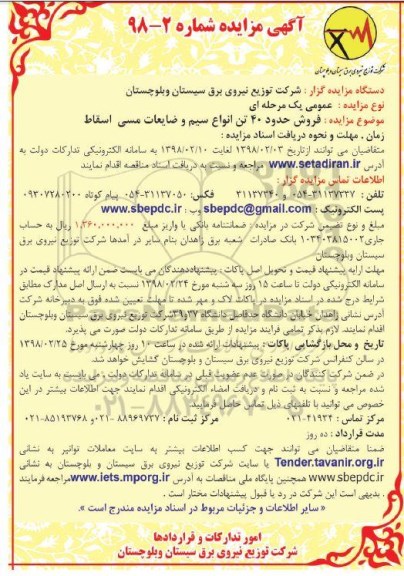 آگهی مزایده شماره ۲-۹۸
شرکت توزیع نیروی برق سیستان وبلوچستان
دستگاه مزایده گزار : شرکت توزیع نیروی برق سیستان وبلوچستان
نوع مزایده : عمومی یک مرحله ای
موضوع مزایده : فروش حدود ۴۰ تن انواع سیم و ضایعات مسی اسقاط
زمان ، مهلت و نحوه دریافت اسناد مزایده :
متقاضیان می توانند ازتاریخ ۱۳۹۸/۰۲/۰۳ لغایت ۱۳۹۸/۰۲/۱۰ به سامانه الکترونیکی تدارکات دولت به
آدرس www.setadiran.ir مراجعه و نسبت به دریافت اسناد مناقصه اقدام نمایند
اطلاعات تماس مزایده گزار :
تلفن : ۳۱۱۳۷۲۳۷-۰۵۴ و ۳۱۱۳۷۳۴۰ فکس: ۳۱۱۳۷۰۵۰-۰۵۴ پیام کوتاه ۰۹۳۰۷۲۸۰۲۰۰
پست الکترونیک : sbepdc@gmail.com وب : www.sbepdc.ir
مبلغ و نوع تضمین شرکت در مزایده : ضمانتنامه بانکی یا واریز مبلغ ۱,۳۶۰,۰۰۰,۰۰۰ ریال به حساب
جاری ۰۱۰۳۴۰۲۸۱۵۰۰۲ بانک صادرات شعبه برق زاهدان بنام سایر در آمدها شرکت توزیع نیروی برق
سیستان وبلوچستان
مهلت ارایه پیشنهاد قیمت و تحویل اصل پاکات : پیشنهاددهندگان می بایست ضمن ارائه پیشنهاد قیمت در
سامانه الکترونیکی دولت تا ساعت ۱۵ روز سه شنبه مورخ ۱۳۹۸/۰۲/۲۴ نسبت به ارسال اصل مدارک مطابق
شرایط درج شده در اسناد مزایده در پاکات لاک و مهر شده تا مهلت تعیین شده فوق به دبیرخانه شرکت
آدرس نشانی زاهدان خیابان دانشگاه حدفاصل دانشگاه ۳۷و۳۹ شرکت توزیع نیروی برق سیستان وبلوچستان
اقدام نمایند. لازم بذکر تمامی فرآیند مزایده از طریق سامانه تدارکات دولت صورت می پذیرد.
تاریخ و محل بازگشایی پاکات : پیشنهادات ارائه شده در ساعت ۱۰ روز چهارشنبه مورخ ۱۳۹۸/۰۲/۲۵
در سالن کنفرانس شرکت توزیع نیروی برق سیستان و بلوچستان گشایش خواهد شد.
در ضمن شرکت کنندگان درصورت عدم عضویت قبلی در سامانه تدارکات دولت ، می بایست به سایت یاد
شده مراجعه و نسبت به ثبت نام و دریافت امضاء الکترونیکی اقدام نمایند جهت اطلاعات بیشتر در این
خصوص می توانید با تلفنهای ذیل تماس حاصل فرمایید.
مرکز تماس : ۴۱۹۳۴-۰۲۱ مرکز ثبت نام : ۸۸۹۶۹۷۳۷-۰۲۱ و ۸۵۱۹۳۷۶۸-۰۲۱
مدت قرارداد : ده روز
ضمنا متقاضیان می توانند جهت کسب اطلاعات بیشتر به سایت معاملات توانیر به نشانی
Tender.tavanir.org.ir یا سایت شرکت توزیع نیروی برق سیستان و بلوچستان به نشانی
www.sbepdc.ir همچنین پایگاه ملی مناقصات به آدرس www.iets.mporg.ir مراجعه فرمایند
. بدیهی است این شرکت در رد یا قبول پیشنهادات مختار است .
« سایر اطلاعات و جزئیات مربوط در اسناد مزایده مندرج است ».
امور تدارکات و قراردادها
شرکت توزیع نیروی برق سیستان وبلوچستان